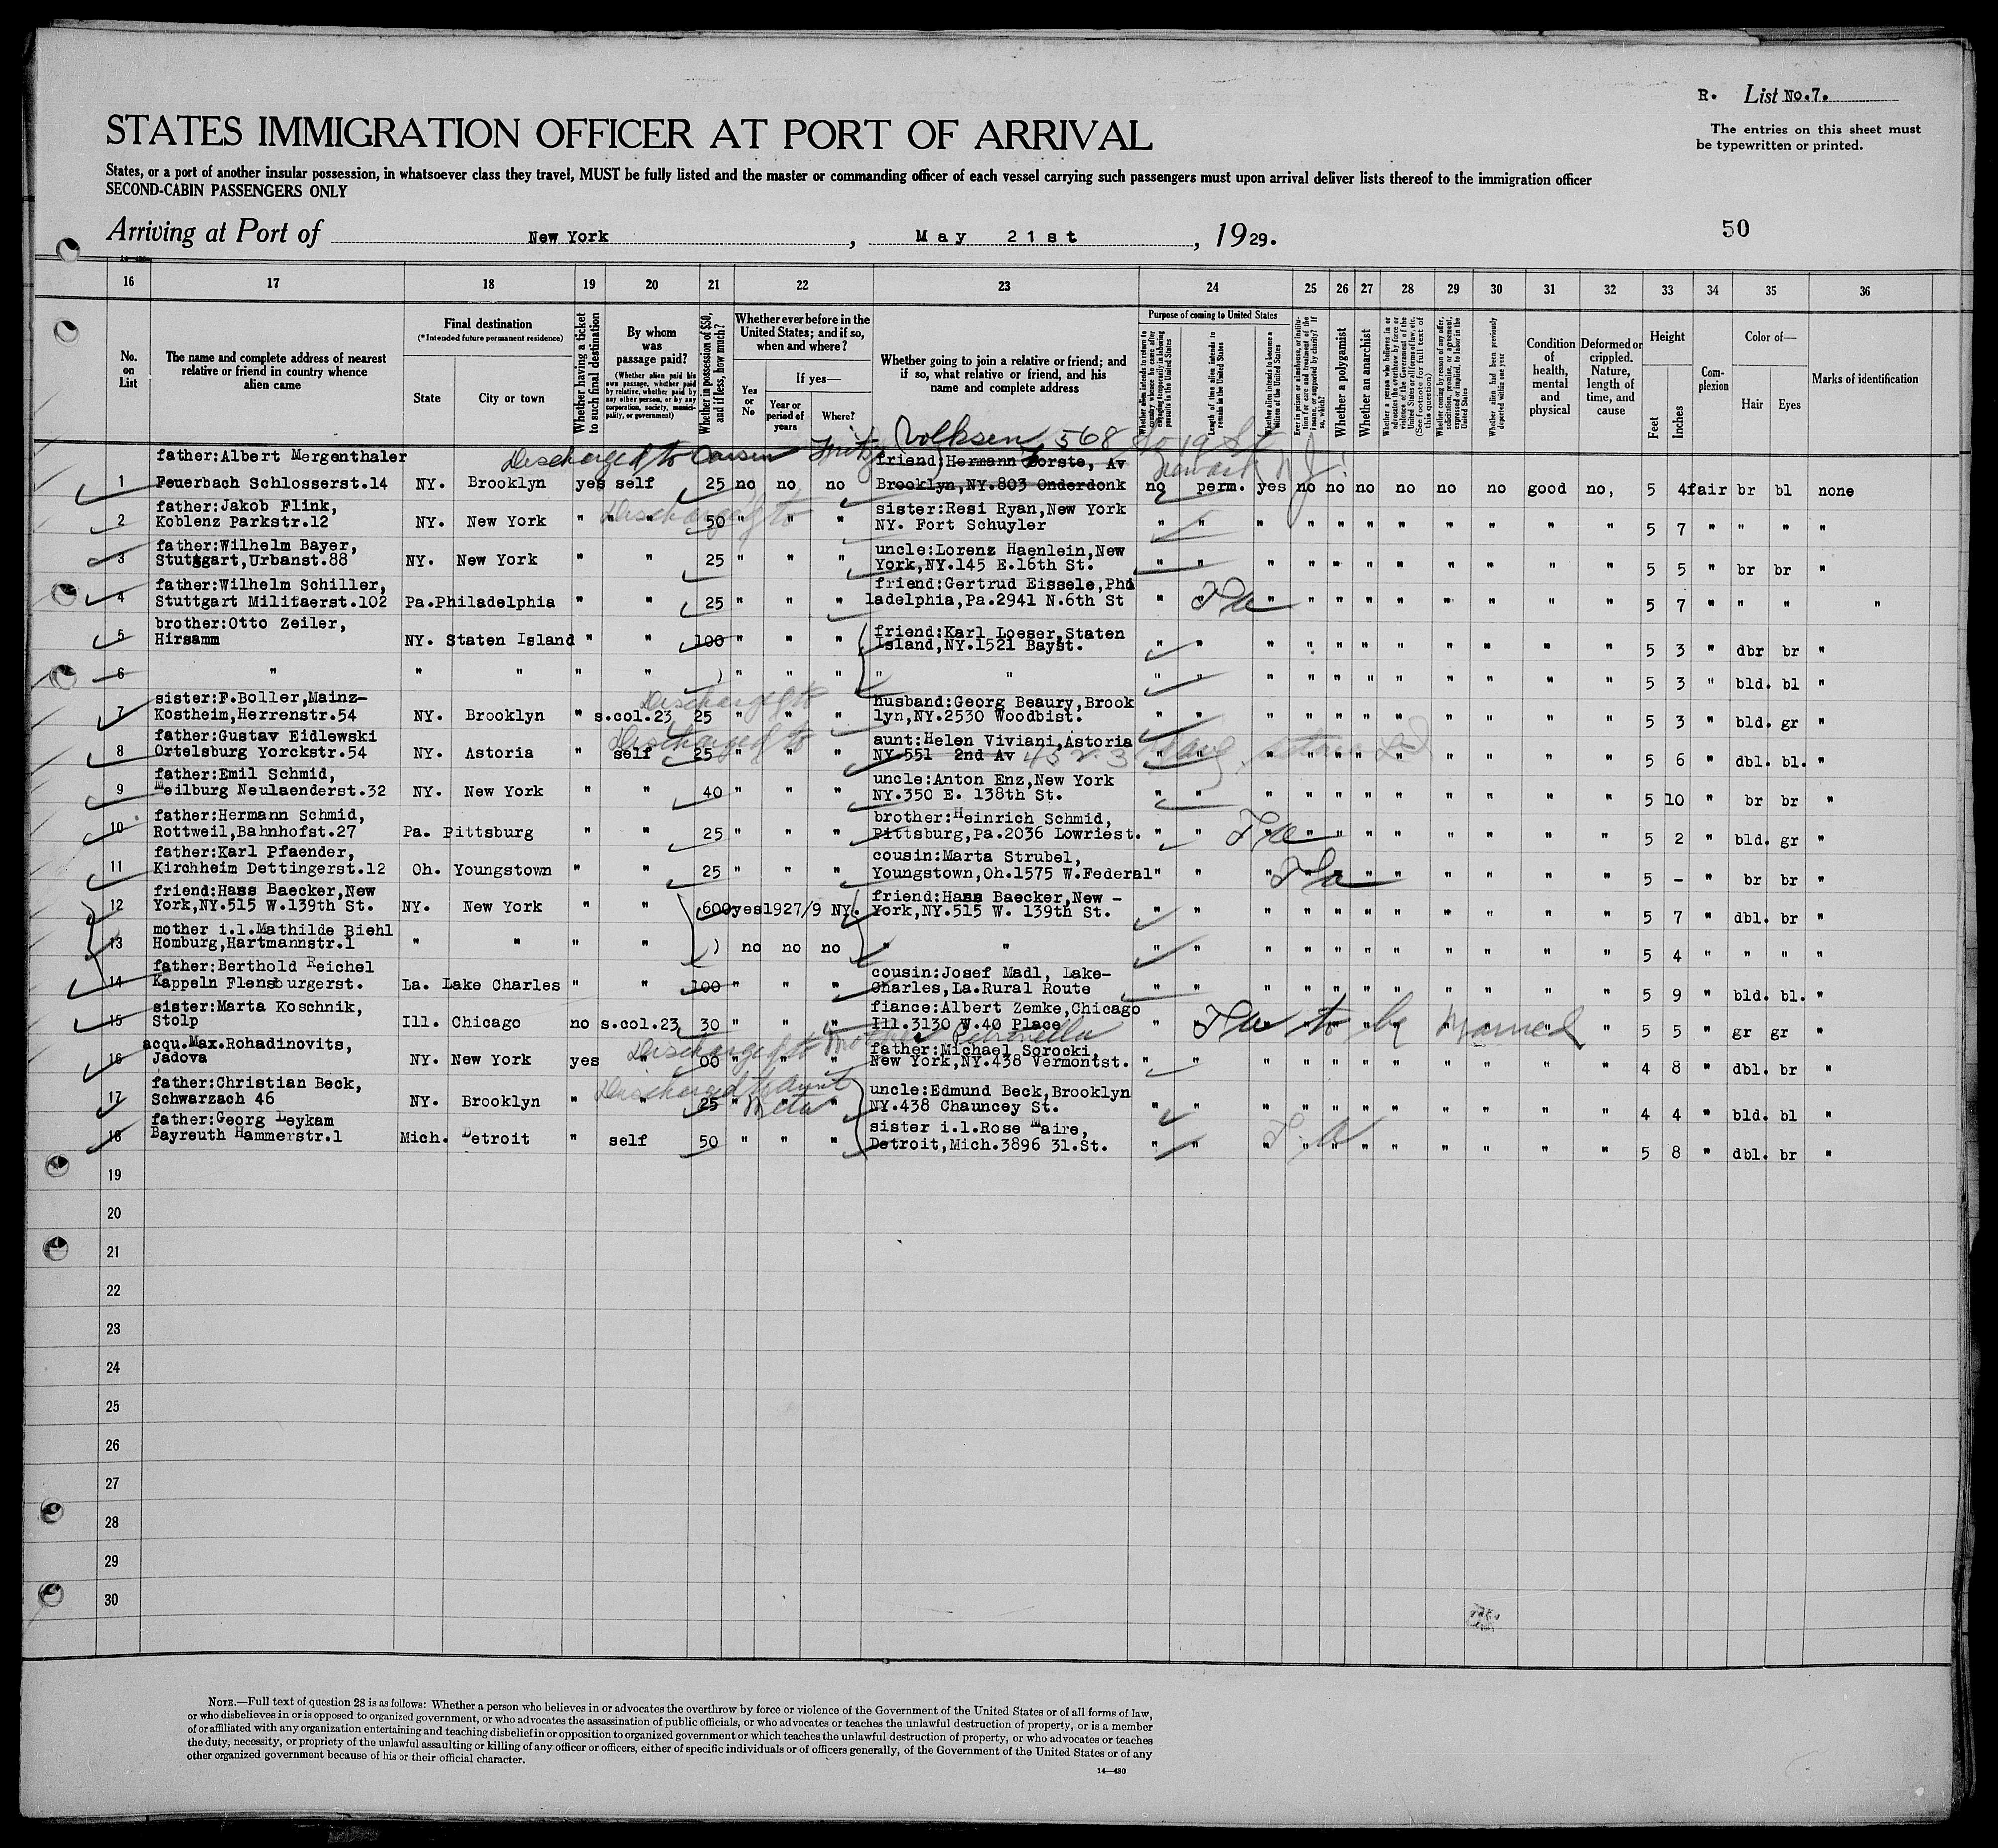 R. List No.7.
STATES IMMIGRATION OFFICER AT PORT OF ARRIVAL
The entries on this sheet must
be typewritten or printed.
States, or a port of another insular possession, in whatsoever class they travel, MUST be fully listed and the master or commanding officer of each vessel carrying such passengers must upon arrival deliver lists thereof to the immigration officer
SECOND-CABIN PASSENGERS ONLY
Arriving at Port of New York, May 21st, 1929.
50
16 17 18 19 20 21 22 23 24 25 26 27 28 29 30 31 32 33 34 35 36
No. on List
The name and complete address of nearest relative or friend in country whence alien came
Final destination
(*Intended future permanent residence)
State
City or town
Whether having a ticket to such final destination
By whom was passage paid?
(Whether alien paid his own passage, whether paid by relative, whether paid by any other person, or by any corporation, society, municipality, or government)
Whether in possession of $50, and if less, how much?
Whether ever before in the United States; and if so, when and where?
Yes or No
If yes—
Year or period of years
Where?
Whether going to join a relative or friend; and if so, what relative or friend, and his name and complete address
Purpose of coming to United States
Whether alien intends to return to country whence he came after engaging temporarily in laboring pursuits in the United States
Length of time alien intends to remain in the United States
Whether alien intends to become a citizen of the United States
Ever in prison or almshouse, or institution for care and treatment of the insane, or supported by charity? If so, which?
Whether a polygamist
Whether an anarchist
Whether coming by reason of any offer, solicitation, promise, or agreement, expressed or implied, to labor in the United States
Whether alien had been previously deported within one year
Condition of health, mental and physical
Deformed or crippled. Nature, length of time, and cause
Height
Feet
Inches
Complexion
Color of—
Hair
Eyes
Marks of identification
Discharged to cousin Fritz Volksen, 568 So 19 St
Newark NJ
father:Albert Mergenthaler friend:Hermann Horste, Av
1 Feuerbach Schlosserst.14 NY. Brooklyn yes self 25 no no no Brooklyn,NY.803 Onderdonk no perm. yes no no no no no no good no, 5 4 fair br bl none
father:Jakob Flink, Discharged to sister:Resi Ryan,New York
2 Koblenz Parkstr.12 NY. New York " " 50 " " " NY. Fort Schuyler " " " " " " " " " " " 5 7 " " " "
father:Wilhelm Bayer, uncle:Lorenz Haenlein,New
3 Stuttgart,Urbanst.88 NY. New York " " 25 " " " York,NY.145 E.16th St. " " " " " " " " " " " 5 5 " br br "
father:Wilhelm Schiller, friend:Gertrud Eissele,Phi
4 Stuttgart Militaerst.102 Pa.Philadelphia " " 25 " " " ladelphia,Pa.2941 N.6th St " " " " " " " " " " 5 7 " " " "
brother:Otto Zeiler, friend:Karl Loeser,Staten
5 Hirsamm NY. Staten Island " " 100 " " " Island,NY.1521 Bayst. " " " " " " " " " " " 5 3 " dbr br "
6 " " " " " ) " " " " " " " " " " " " " " " " " 5 3 " bld. bl "
sister:F.Boller,Mainz- Discharged to husband:Georg Beaury,Brook
7 Kostheim,Herrenstr.54 NY. Brooklyn " s.col.23 25 " " " lyn,NY.2530 Woodbist. " " " " " " " " " " " 5 3 " bld. gr "
father:Gustav Eidlewski Discharged to aunt:Helen Viviani,Astoria
8 Ortelsburg Yorckstr.54 NY. Astoria " self 25 " " " NY.551 2nd Av " " " " " " " " " " " 5 6 " dbl. bl. "
father:Emil Schmid, uncle:Anton Enz,New York
9 Meilburg Neulaenderst.32 NY. New York " " 40 " " " NY.350 E. 138th St. " " " " " " " " " " " 5 10 " br br "
father:Hermann Schmid, brother:Heinrich Schmid,
10 Rottweil,Bahnhofst.27 Pa. Pittsburg " " 25 " " " Pittsburg,Pa.2036 Lowriest. " " " " " " " " " " " 5 2 " bld. gr "
father:Karl Pfaender, cousin:Marta Strubel,
11 Kirchheim Dettingerst.12 Oh. Youngstown " " 25 " " " Youngstown,Oh.1575 W.Federal " " " " " " " " " " 5 - " br br "
friend:Hans Baecker,New friend:Hans Baecker,New -
12 York,NY.515 W.139th St. NY. New York " " 600 yes 1927/9 NY. York,NY.515 W. 139th St. " " " " " " " " " " " 5 7 " dbl. br "
mother i.l.Mathilde Biehl
13 Homburg,Hartmannstr.1 " " " " ) no no no " " " " " " " " " " " " " 5 4 " " " "
father:Berthold Reichel cousin:Josef Madl, Lake-
14 Kappeln Flensburgerst. La. Lake Charles " " 100 " " " Charles,La.Rural Route " " " " " " " " " " " 5 9 " bld. bl. "
sister:Marta Koschnik, fiance:Albert Zemke,Chicago
15 Stolp Ill. Chicago no s.col.23 30 " " " Ill.3130 W.40 Place " " to be married " 5 5 " gr gr "
acqu.Max.Rohadinovits, Discharged to mother Petronella father:Michael Sorocki,
16 Jadova NY. New York yes " 00 " " " New York,NY.438 Vermontst. " " " " " " " " " " " 4 8 " dbl. br "
father:Christian Beck, Discharged to aunt Meta uncle:Edmund Beck,Brooklyn
17 Schwarzach 46 NY. Brooklyn " 25 " " " NY.438 Chauncey St. " " " " " " " " " " " 4 4 " bld. bl "
father:Georg Leykam sister i.l.Rose Maire,
18 Bayreuth Hammerstr.1 Mich. Detroit " self 50 " " " Detroit,Mich.3896 31.St. " " " " " " " " " " " 5 8 " dbl. br "
19
20
21
22
23
24
25
26
27
28
29
30
NOTE.—Full text of question 28 is as follows: Whether a person who believes in or advocates the overthrow by force or violence of the Government of the United States or of all forms of law,
or who disbelieves in or is opposed to organized government, or who advocates the assassination of public officials, or who advocates or teaches the unlawful destruction of property, or is a member
of or affiliated with any organization entertaining and teaching disbelief in or opposition to organized government or which teaches the unlawful destruction of property, or who advocates or teaches
the duty, necessity, or propriety of the unlawful assaulting or killing of any officer or officers, either of specific individuals or of officers generally, of the Government of the United States or of any
other organized government because of his or their official character.
14—430